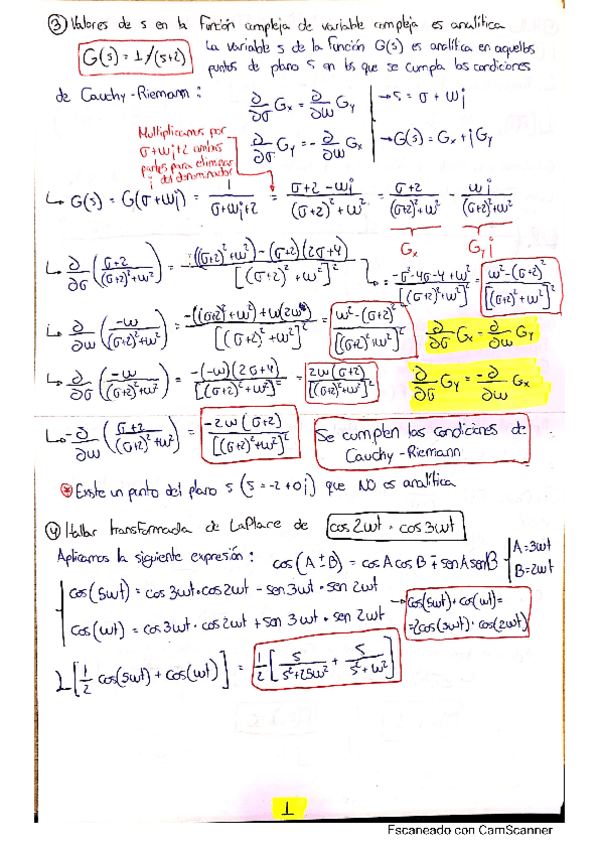 ③ Valores de s en la función compleja de variable compleja es analítica
G(s) = 1/(s+2)
La variable s de la función G(s) es analítica en aquellos
puntos de plano s en los que se cumpla las condiciones
de Cauchy-Riemann:
∂/∂σ Gx = ∂/∂w Gy → s = σ + wj
∂/∂σ Gy = - ∂/∂w Gx → G(s) = Gx + jGy
Multiplicamos por
σ+wj+2 ambas
partes para eliminar
j del denominador
↳ G(s) = G(σ+wj) = 1/(σ+wj+2) = (σ+2-wj)/((σ+2)²+w²) = (σ+2)/((σ+2)²+w²) - wj/((σ+2)²+w²)
Gx Gyj
↳ ∂/∂σ ((σ+2)/((σ+2)²+w²)) = (((σ+2)²+w²)-(σ+2)(2σ+4))/[(σ+2)²+w²]² ↳ = (-σ²-4σ-4+w²)/[(σ+2)²+w²]² = (w²-(σ+2)²)/[(σ+2)²+w²]²
↳ ∂/∂w (-w/((σ+2)²+w²)) = (-((σ+2)²+w²)+w(2w))/[(σ+2)²+w²]² = (w²-(σ+2)²)/[(σ+2)²+w²]² ∂/∂σ Gx = ∂/∂w Gy
↳ ∂/∂σ (-w/((σ+2)²+w²)) = (-(-w)(2σ+4))/[(σ+2)²+w²]² = (2w(σ+2))/[(σ+2)²+w²]² ∂/∂σ Gy = -∂/∂w Gx
↳ -∂/∂w ((σ+2)/((σ+2)²+w²)) = (-2w(σ+2))/[(σ+2)²+w²]²
Se cumplen las condiciones de
Cauchy-Riemann
⊛ Existe un punto del plano s (s = -2+0j) que NO es analítica
④ Hallar transformada de LaPlace de cos2wt · cos3wt
Aplicamos la siguiente expresión: cos(A±B) = cosAcosB ∓ senAsenB { A=3wt
B=2wt
cos(5wt) = cos3wt·cos2wt - sen3wt·sen2wt
→ cos(5wt)+cos(wt)=
=2cos(3wt)·cos(2wt)
cos(wt) = cos3wt·cos2wt + sen3wt·sen2wt
L[1/2 cos(5wt)+cos(wt)] = 1/2[s/(s²+25w²) + s/(s²+w²)]
1
Escaneado con CamScanner